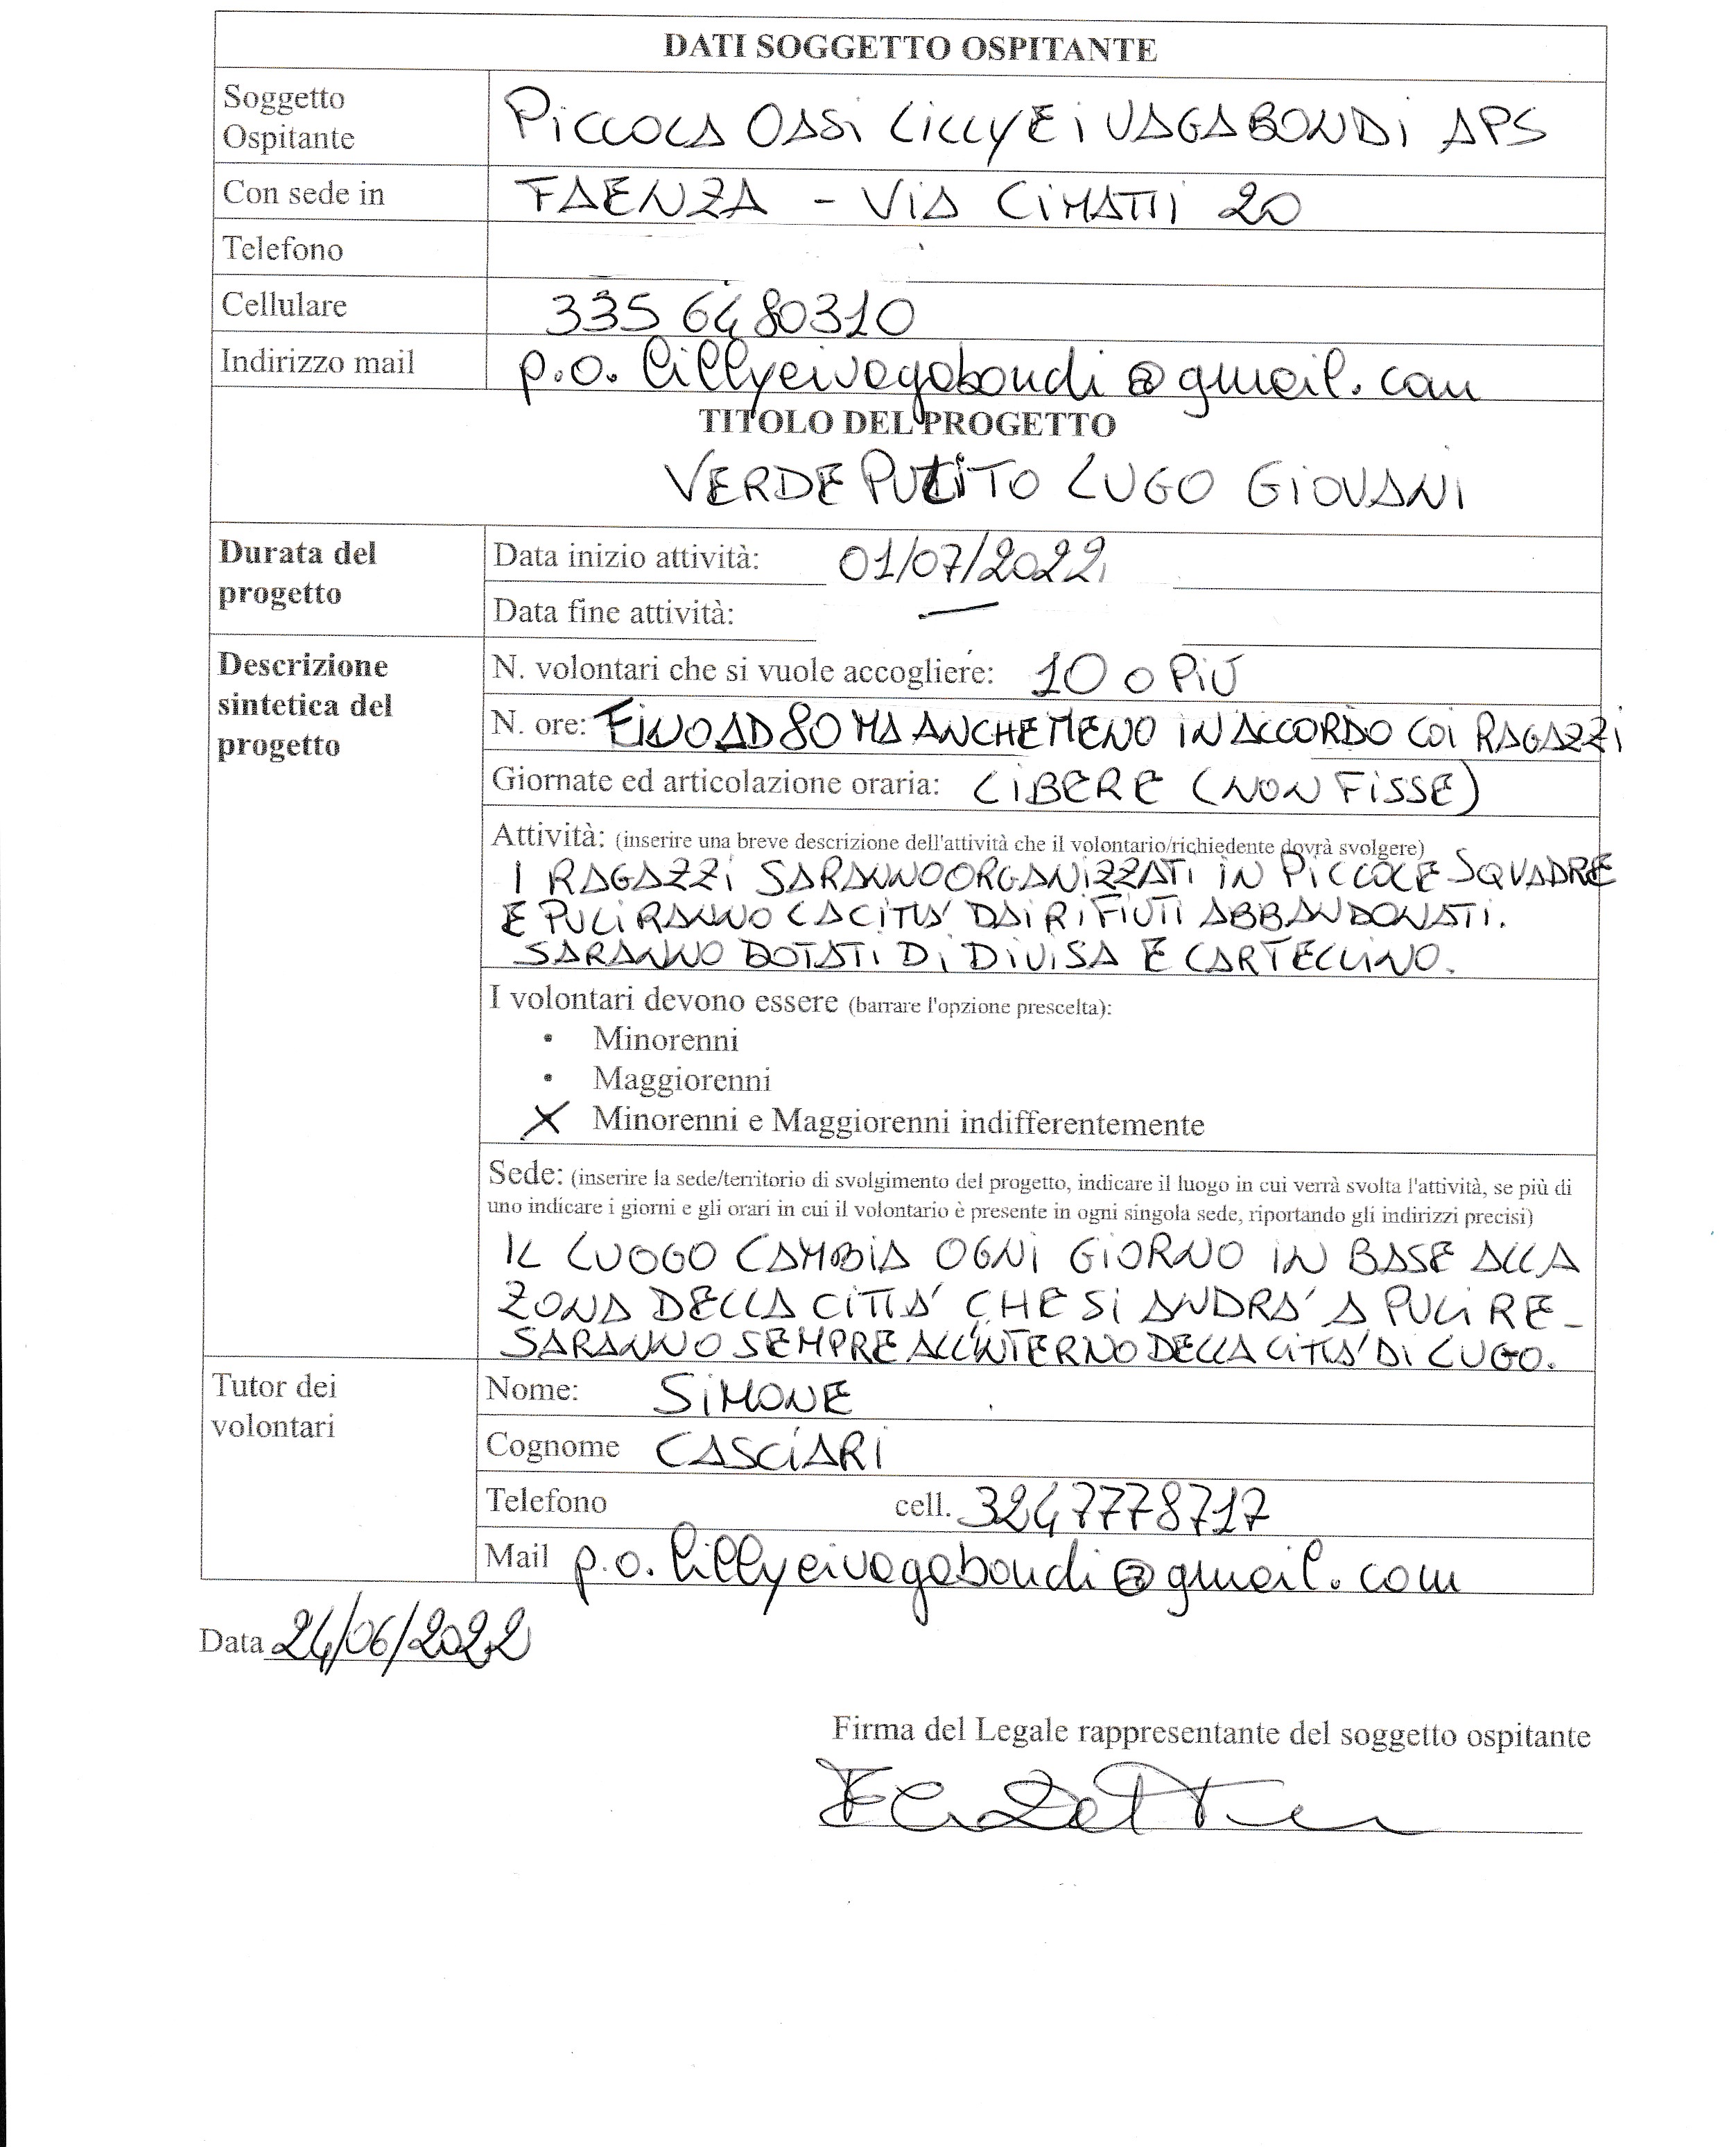 DATI SOGGETTO OSPITANTE
Soggetto
Ospitante
PICCOLA OASI LILLY E I VAGABONDI APS
Con sede in FAENZA - VIA CIMATTI 20
Telefono
Cellulare 335 6480310
Indirizzo mail p.o.lillyeivagabondi@gmail.com
TITOLO DEL PROGETTO
VERDE PULITO LUGO GIOVANI
Durata del
progetto
Data inizio attività: 01/07/2022
Data fine attività: —
Descrizione
sintetica del
progetto
N. volontari che si vuole accogliere: 10 O PIÙ
N. ore: FINO AD 80 MA ANCHE MENO IN ACCORDO COI RAGAZZI
Giornate ed articolazione oraria: LIBERE (NON FISSE)
Attività: (inserire una breve descrizione dell'attività che il volontario/richiedente dovrà svolgere)
I RAGAZZI SARANNO ORGANIZZATI IN PICCOLE SQUADRE
E PULIRANNO LA CITTA' DAI RIFIUTI ABBANDONATI.
SARANNO DOTATI DI DIVISA E CARTELLINO.
I volontari devono essere (barrare l'opzione prescelta):
• Minorenni
• Maggiorenni
X Minorenni e Maggiorenni indifferentemente
Sede: (inserire la sede/territorio di svolgimento del progetto, indicare il luogo in cui verrà svolta l'attività, se più di
uno indicare i giorni e gli orari in cui il volontario è presente in ogni singola sede, riportando gli indirizzi precisi)
IL LUOGO CAMBIA OGNI GIORNO IN BASE ALLA
ZONA DELLA CITTA' CHE SI ANDRA' A PULIRE -
SARANNO SEMPRE ALL'INTERNO DELLA CITTA' DI LUGO.
Tutor dei
volontari
Nome: SIMONE
Cognome CASCIARI
Telefono cell. 3247778717
Mail p.o.lillyeivagabondi@gmail.com
Data 24/06/2022
Firma del Legale rappresentante del soggetto ospitante